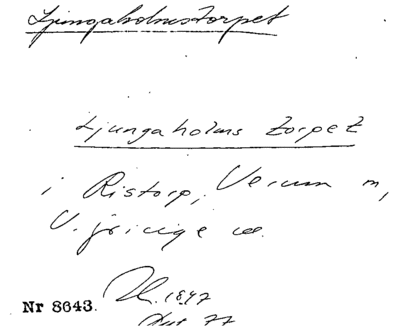 Ljungaholmstorpet
Ljungaholms torpet
i Ristorp, Verum
V. Göinge
Nr 8643. 1847